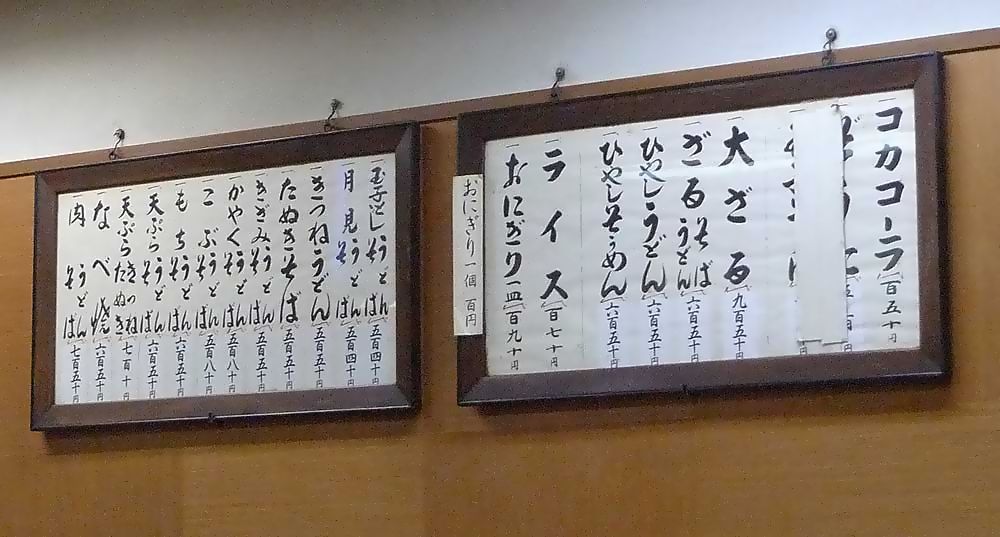 コカコーラ 百五十円
大ざる 九百五十円
ざる そば うどん 六百五十円
ひやしうどん 六百五十円
ひやしそうめん 六百五十円
ライス 百七十円
おにぎり一皿 百九十円
おにぎり一個 百円
玉子とじ うどん そば 五百四十円
月見 うどん そば 五百四十円
きつねうどん 五百五十円
たぬきそば 五百五十円
きざみ うどん そば 五百五十円
かやく うどん そば 五百八十円
こぶ うどん そば 五百八十円
もち うどん そば 六百五十円
天ぷら うどん そば 六百五十円
天ぷら きつね たぬき 七百十円
なべ焼 六百五十円
肉 うどん そば 七百五十円